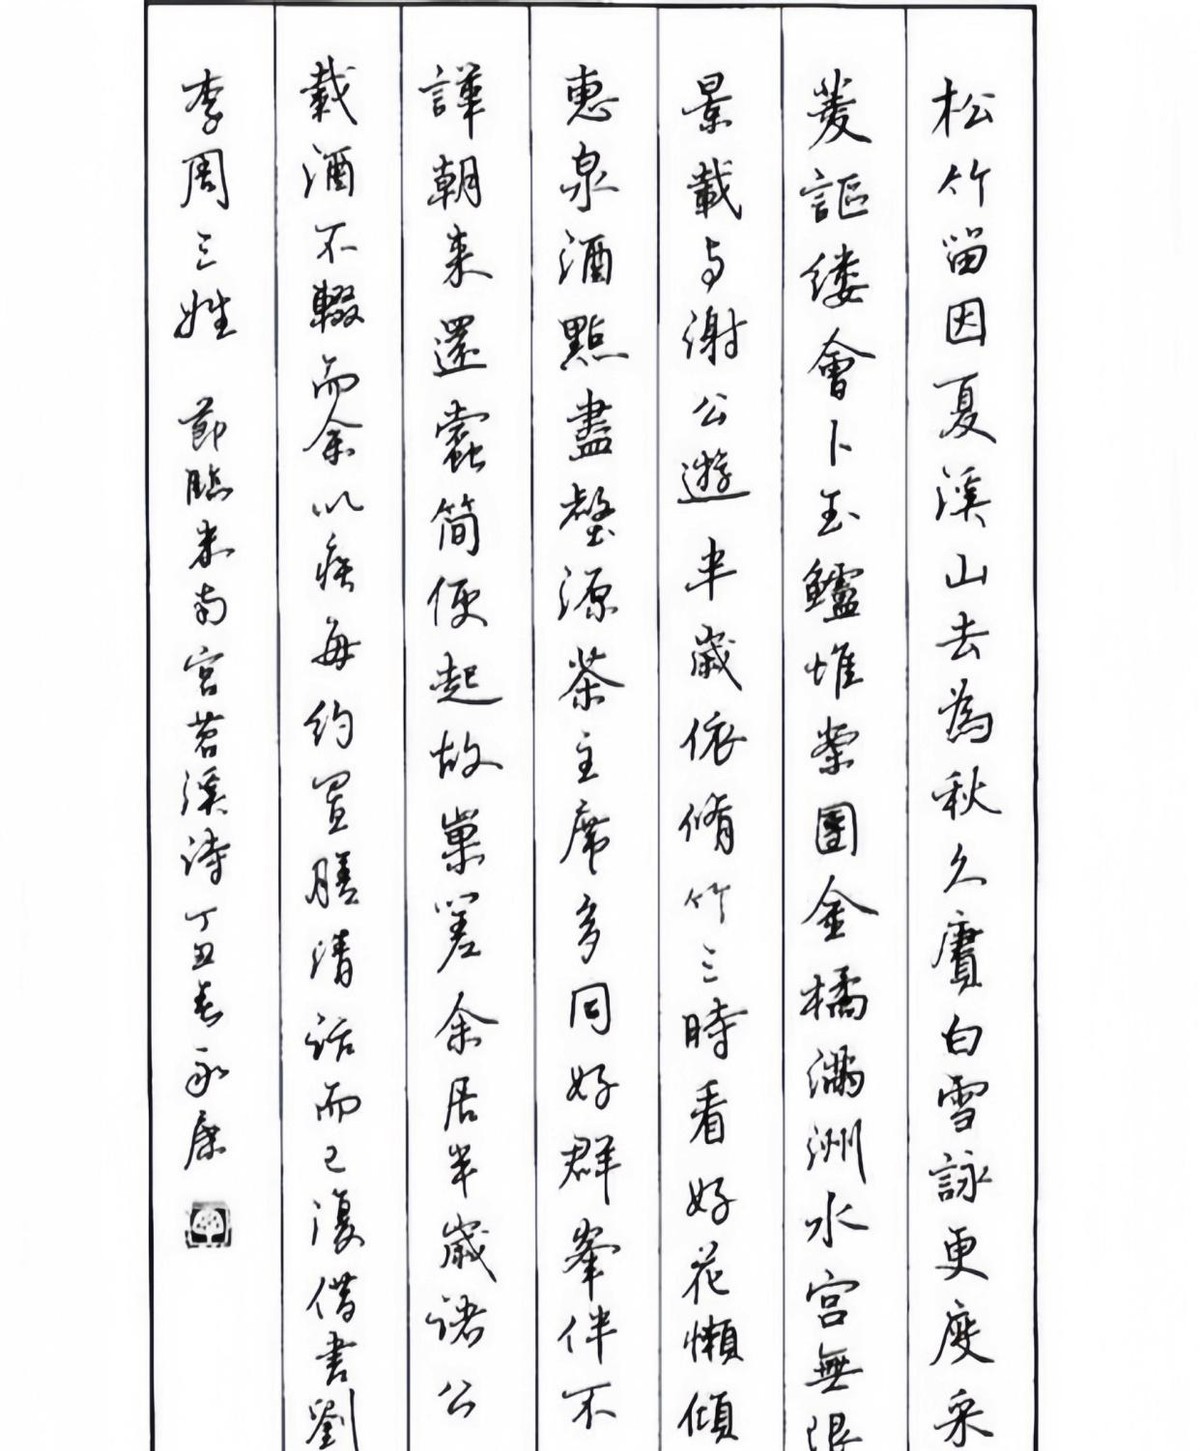 松竹留因夏溪山去為秋久賡白雪詠更度采
菱謳縷會卜玉鱸堆案團金橘滿洲水宮無限
景載与謝公遊半歲依脩竹三時看好花懶傾
惠泉酒點盡壑源茶主席多同好群峯伴不
譁朝来還蠹簡便起故巢罢余居半歲諸公
載酒不輟而余以疾每約置膳清話而已復借書劉
李周三姓 節臨米南宮苕溪詩丁丑春永康